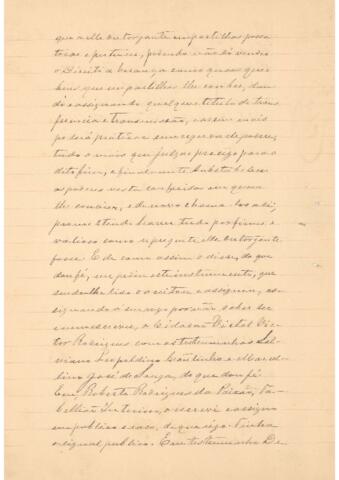 que a elle outorgante em partilhas possa
tocar e pertencer, podendo não só vender
o Direito a herança como quaes quer
bens que em partilhas lhe couber, dan-
do e assignando qualquer titulo de trans
ferencia e transmissão, e assim mais
poderá praticar em
tudo o mais que julgar preciso para o
dito fim, e finalmente substabelecer
os poderes nesta conferidos em quem
lhe convier, e de novo chamar los a si,
promettendo haver tudo por firme e
valioso como se presente elle outorgante
fosse. E de como assim o disse, do que
dou fé, me pedio este instrumento, que
sendo lhe lido o aceitou e assignou, as-
signando a seu rogo por não saber ler
nem escrever, o Cidadão Vic-
tor Rodrigues com as testemunhas Sal-
viano Leopoldino Coutinho e Marcol-
lino José de Souza, do que dou fé
Eu, Roberto Rodrigues da Paixão, Ta-
bellião Interino, o escrevi e assigno
em publico e raso, de que uso. Tinha
o signal publico. Em testemunho De